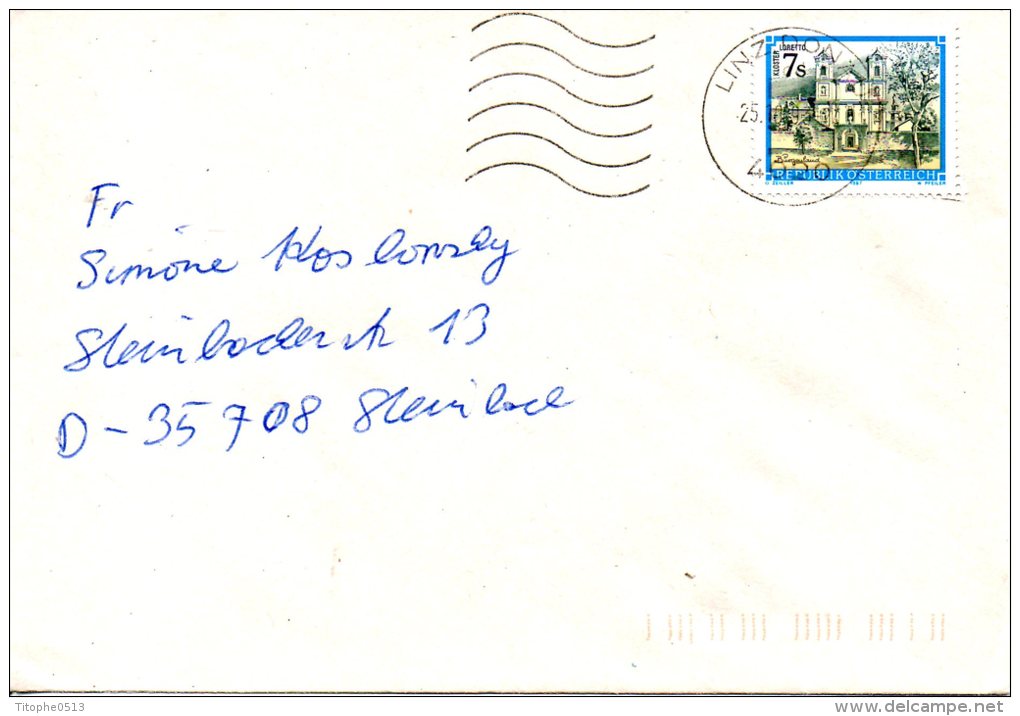 LINZ DON
25.1
4020
KLOSTER LORETTO
7s
Burgenland
REPUBLIK ÖSTERREICH
U. ZEILLER 1987 W. PFEILER
Fr
Simone Koslowsky
Steinbacherstr 13
D-35708 Steinbach
Titophe0513
www.delcampe.net